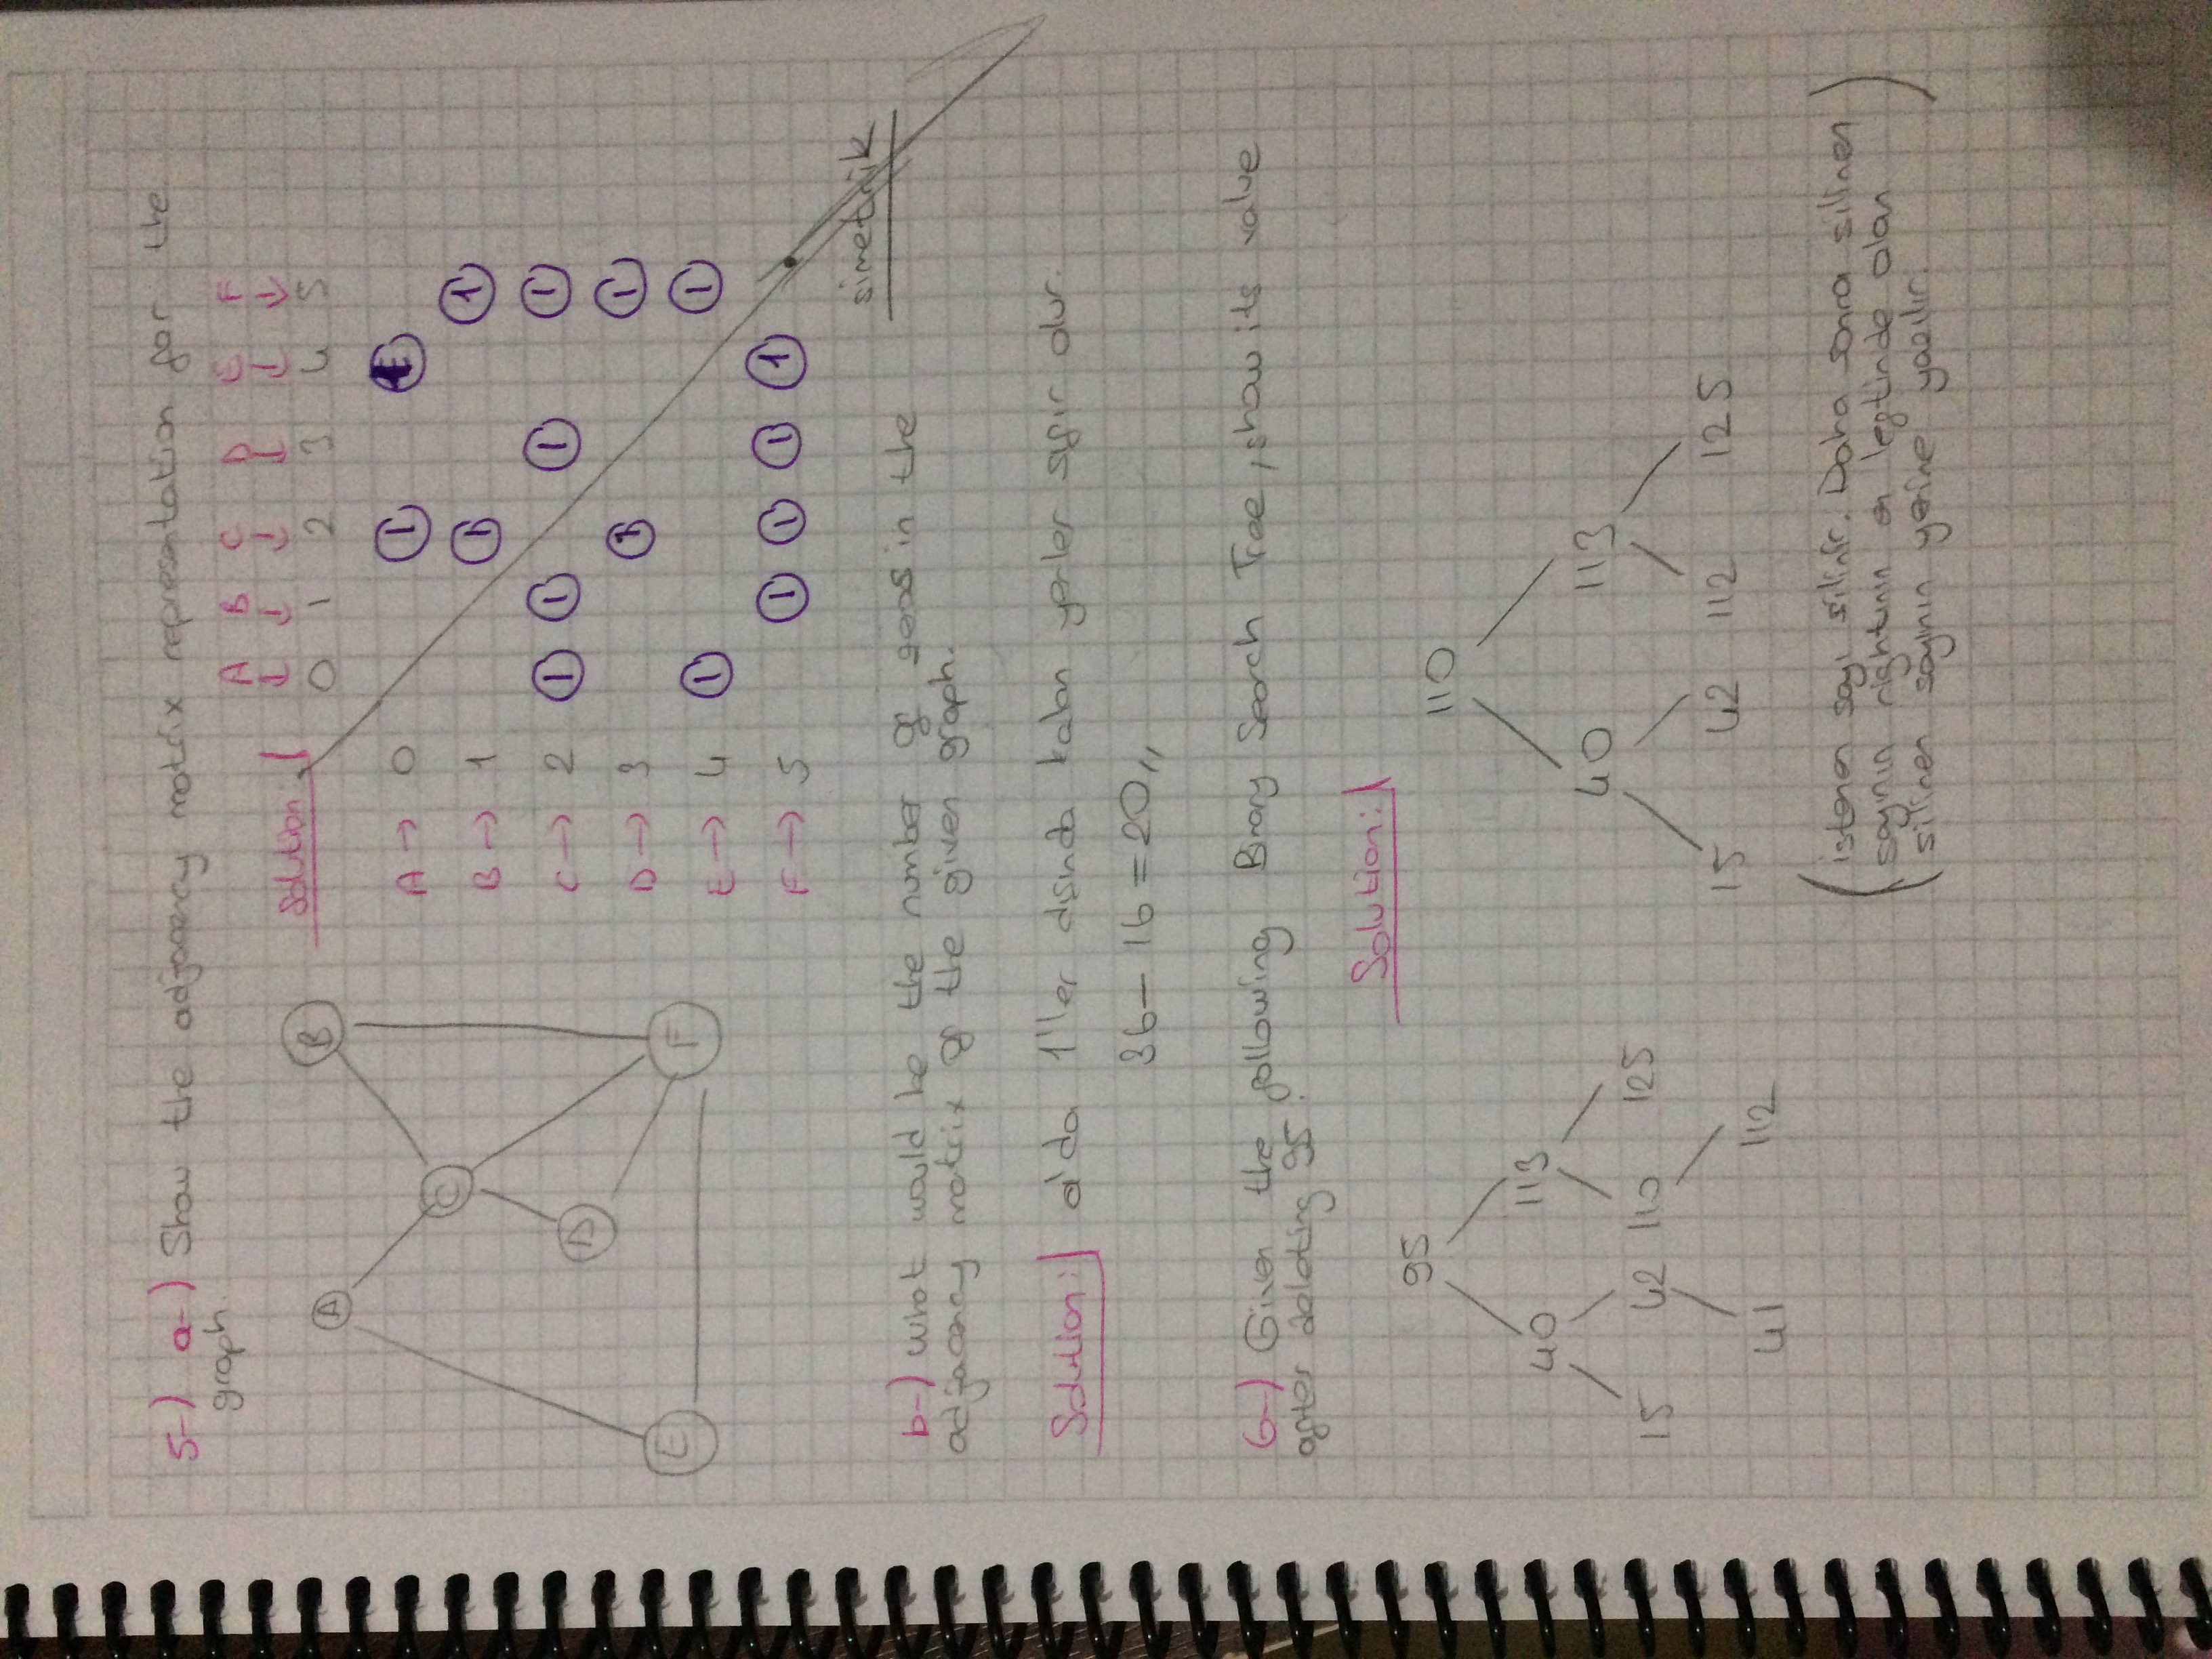 5-) a-) Show the adjacency matrix representation for the
graph.
A B C D E F
Solution:
0 1 2 3 4 5
A
B
C
D
E
F
A → 0 1 1
B → 1 1 1
C → 2 1 1 1 1
D → 3 1 1
E → 4 1 1
F → 5 1 1 1 1
simetrik
b-) What would be the number of zeros in the
adjacency matrix of the given graph.
Solution: a'da 1'ler dışında kalan yerler sıfır olur.
36 - 16 = 20,,
6-) Given the following Binary Search Tree, show its value
after deleting 95.
Solution:
95
40 113
15 42 110 125
41 112
110
40 113
15 42 112 125
(istenen sayı silinir. Daha sonra silinen
sayının rightının en leftinde olan
silinen sayının yerine yazılır.)